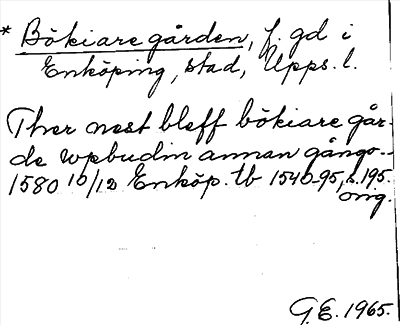 * Bökiare gården, f. gd i
Enköping, stad, Upps. l.
Ther nest bleff bökiare går-
de wpbudin annan gångo--
1580 10/12 Enköp. tb 1540-95, s. 195.
orig.
G.E. 1965.